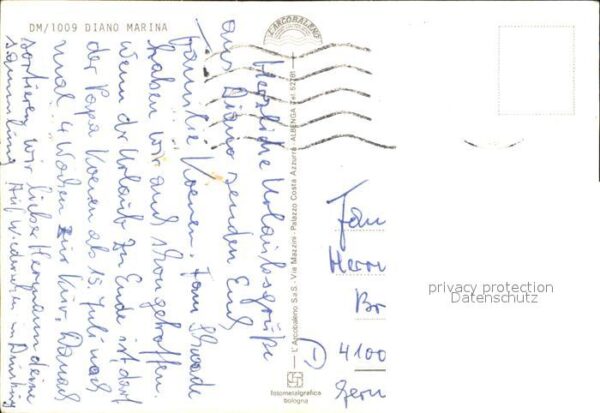 DM/1009 DIANO MARINA
L'ARCOBALENO
Herzliche Urlaubsgrüße
aus Diano senden Euch
Familie Koenen. Fam.
haben wir auch schon getroffen.
Wenn der Urlaub zu Ende ist darf
der Papa Koenen ab 15. Juli nach
mal 4 Wochen zur Kur. Danach
sortieren wir lieber Hermann deine
Sammlung. Auf Wiedersehen in Duisburg
L'Arcobaleno S.a.S. Via Mazzini - Palazzo Costa Azzurra - ALBENGA Tel. 52781
fotometalgrafica
bologna
Fam
Herrn
Br
D 4100
Germ
privacy protection
Datenschutz